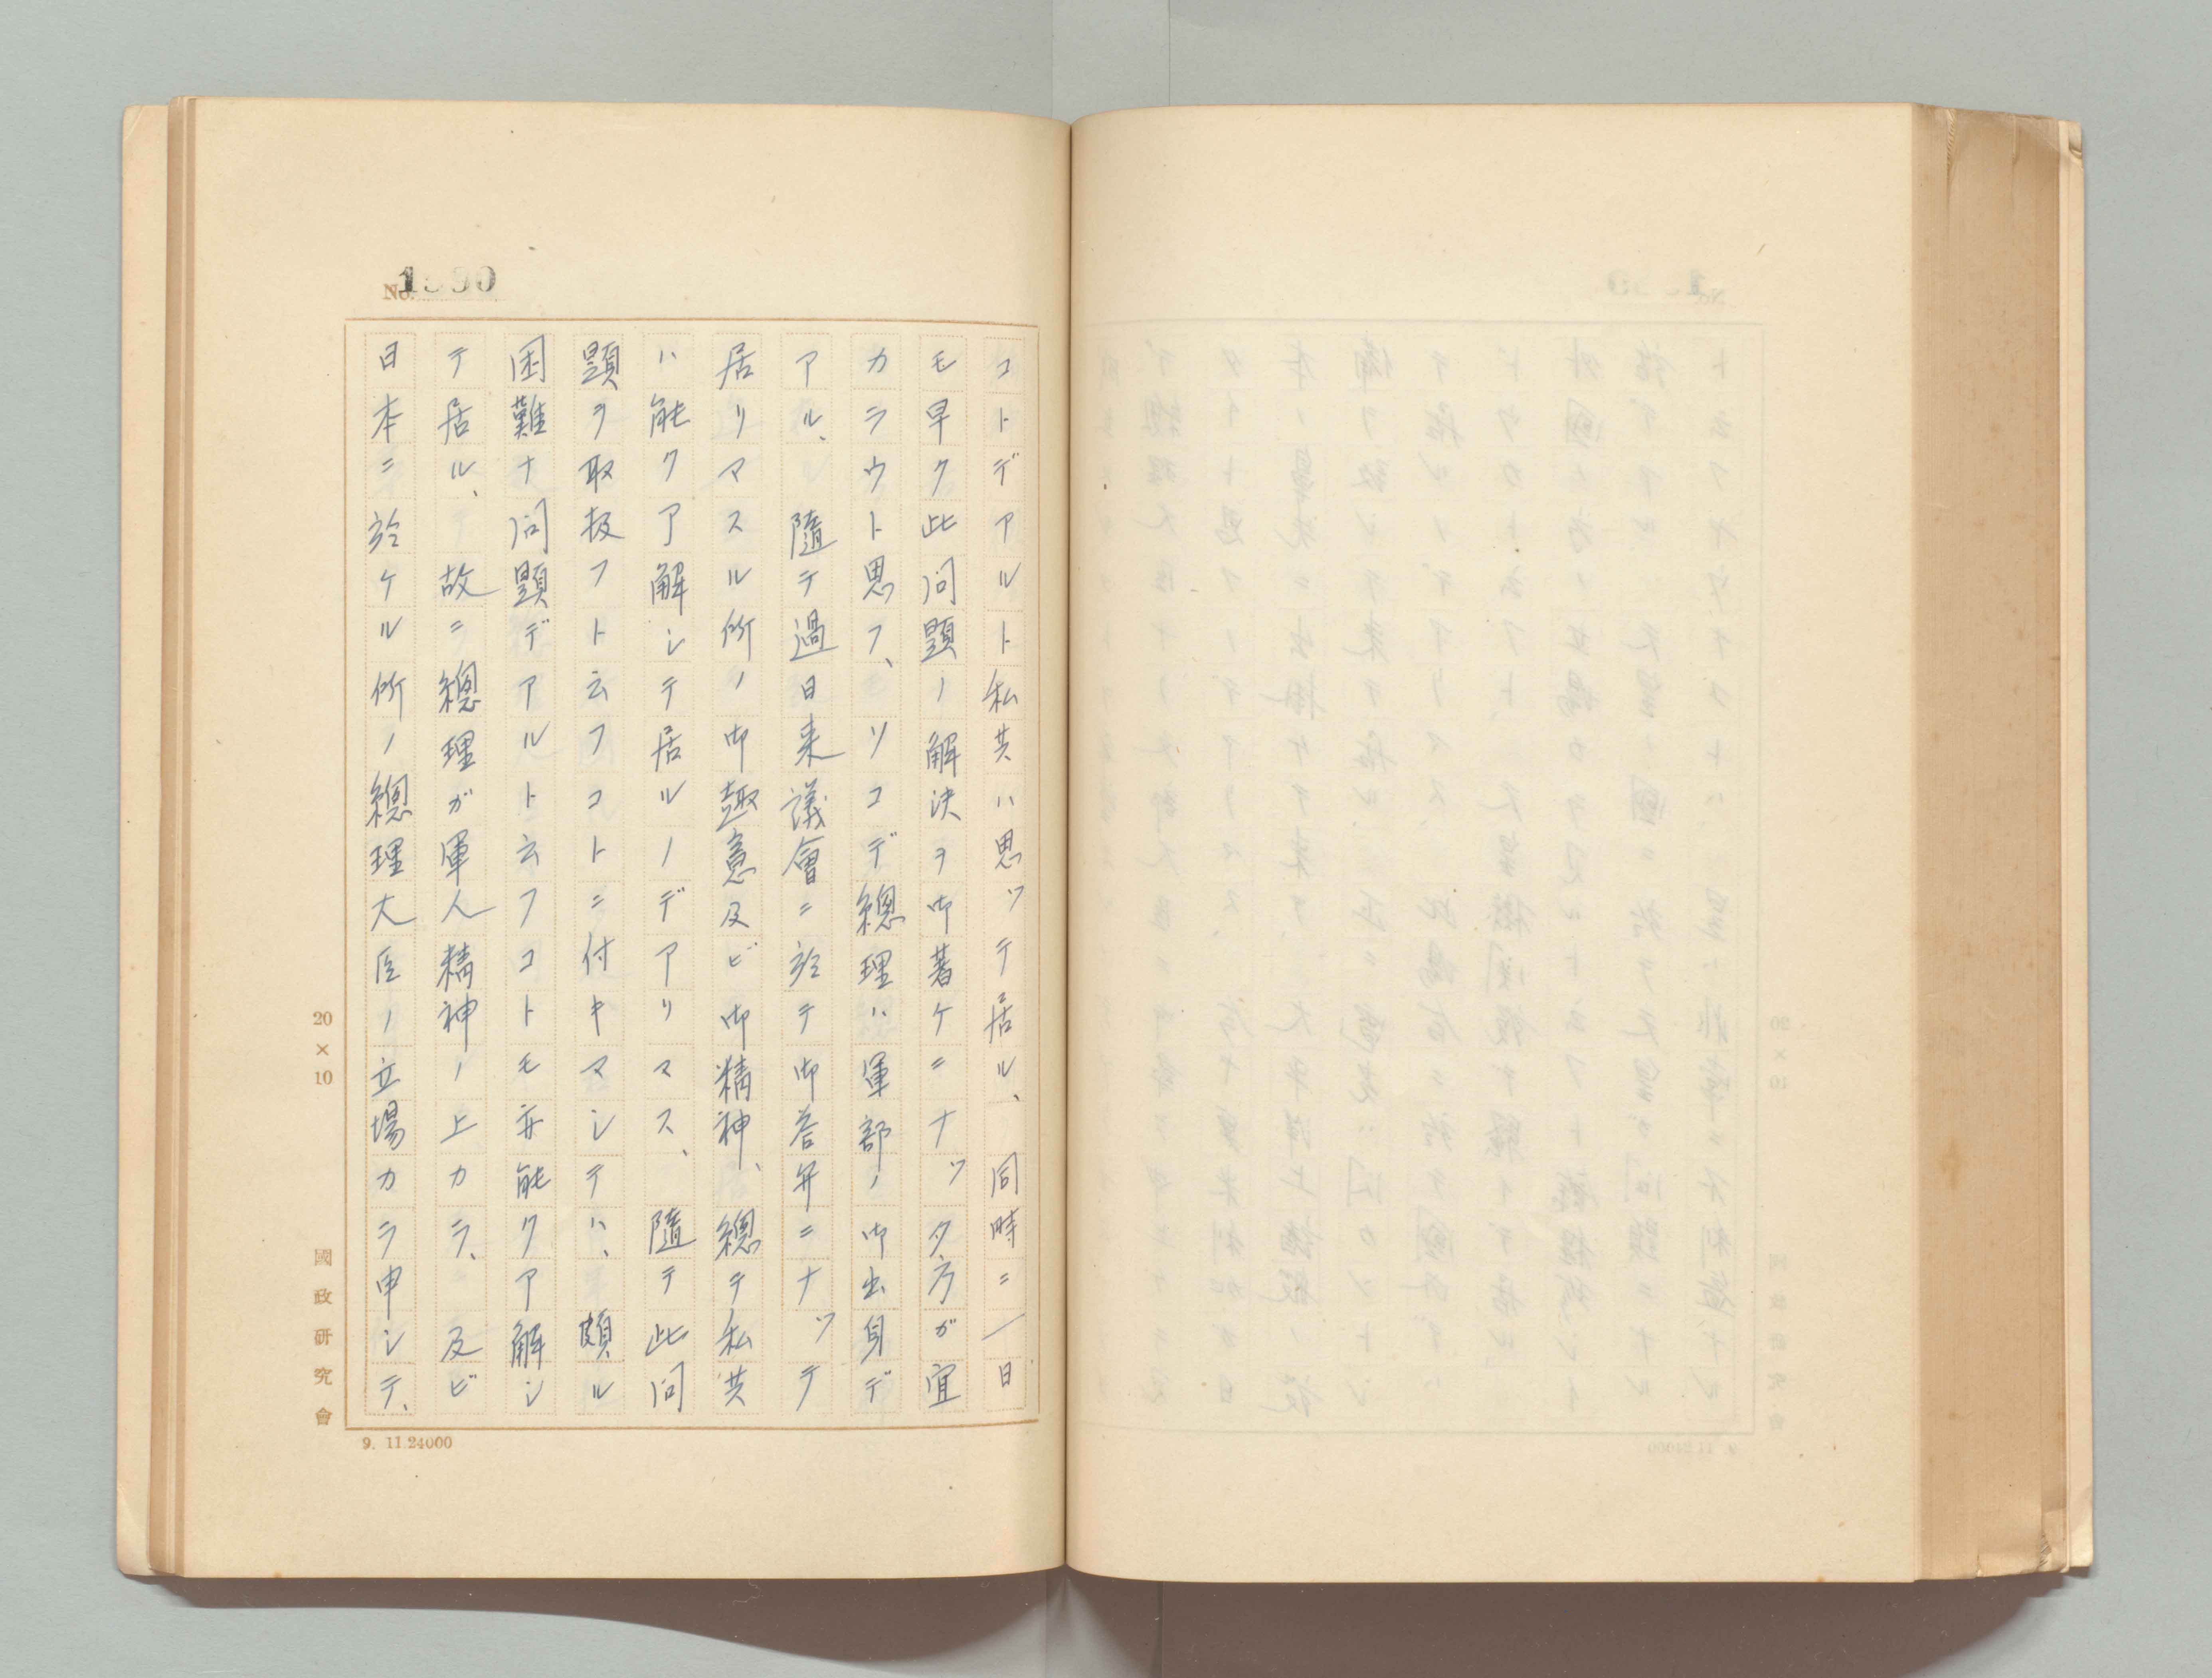 コトデアルト私共ハ思ツテ居ル、同時ニ一日
モ早ク此问題ノ解決ヲ御著ケニナツタ方ガ宜
カラウト思フ、ソコデ總理ハ軍部ノ御出身デ
アル、隨テ過日来議會ニ於テ御荅弁ニナツテ
居リマスル所ノ御趣意及ビ御精神、總テ私共
ハ能クア解シテ居ルノデアリマス、隨テ此问
題ヲ取扱フト云フコトニ付キマシテハ、頗ル
困難ナ问題デアルト云フコトモ亦能クア解シ
テ居ル、故ニ總理ガ軍人精神ノ上カラ、及ビ
日本ニ於ケル所ノ總理大臣ノ立場カラ申シテ、
No.
20×10
國政研究會
9. 11.24000